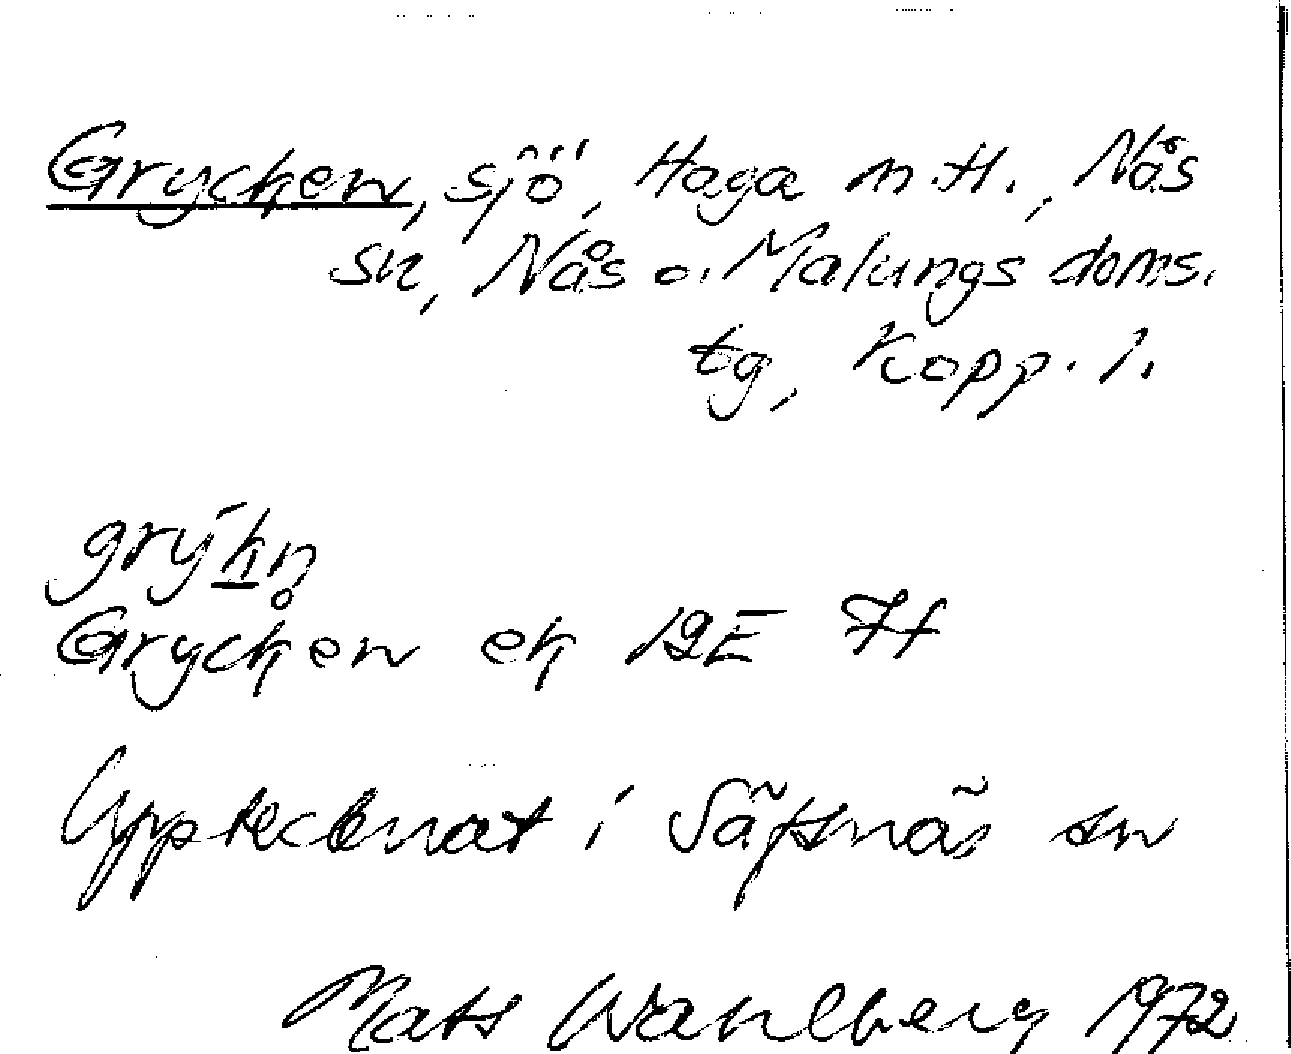 Grycken, sjö, Haga m.fl., Nås
sn, Nås o. Malungs doms.
tg, Kopp. l.
grýkn̥
Grycken ek 12E 7f
Upptecknat i Säfsnäs sn
Mats Wahlberg 1972